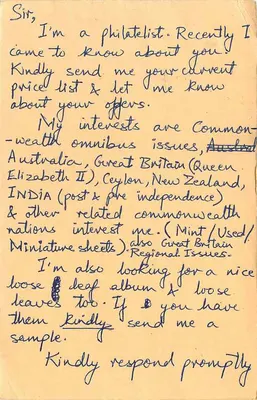 Sir,
I'm a philatelist. Recently I
came to know about you
Kindly send me your current
price list & let me know
about your offers.
My interests are Common-
-wealth omnibus issues,
Australia, Great Britain (Queen
Elizabeth II), Ceylon, New Zealand,
INDIA (post & pre independence)
& other related commonwealth
nations interest me. (Mint/Used/
Miniature sheets) also Great Britain
Regional Issues.
I'm also looking for a nice
loose leaf album & loose
leaves too. If you have
them kindly send me a
sample.
Kindly respond promptly